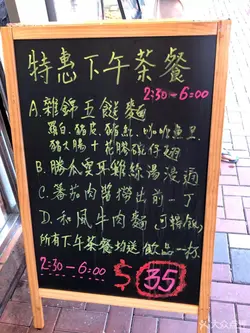 特惠下午茶餐
2:30-6:00
A.雜錦五餸麵
蘿白.豬皮.豬紅.咖哩魚旦
豬大腸+花膠碗仔翅
B.勝瓜雲耳雞絲湯浸通
C.蕃茄肉醬撈出前一丁
D.和風牛肉麵(可撈飯)
所有下午茶餐均送飲品一杯
2:30-6:00
$35
大众点评